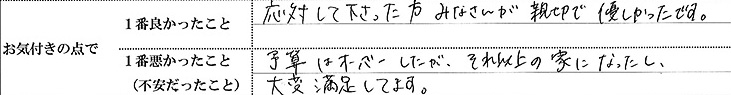 お気付きの点で
1番良かったこと
応対して下さった方 みなさんが 親切で 優しかったです。
1番悪かったこと
(不安だったこと)
予算はオーバーしたが、それ以上の家になったし、
大変満足してます。